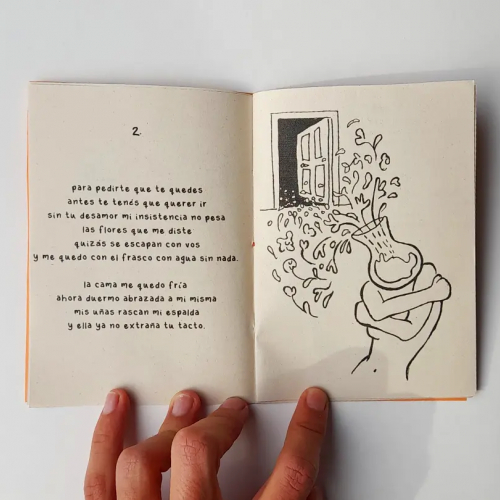 2.
para pedirte que te quedes
antes te tenés que querer ir
sin tu desamor mi insistencia no pesa
las flores que me diste
quizás se escapan con vos
y me quedo con el frasco con agua sin nada.
la cama me quedo fría
ahora duermo abrazada a mi misma
mis uñas rascan mi espalda
y ella ya no extraña tu tacto.